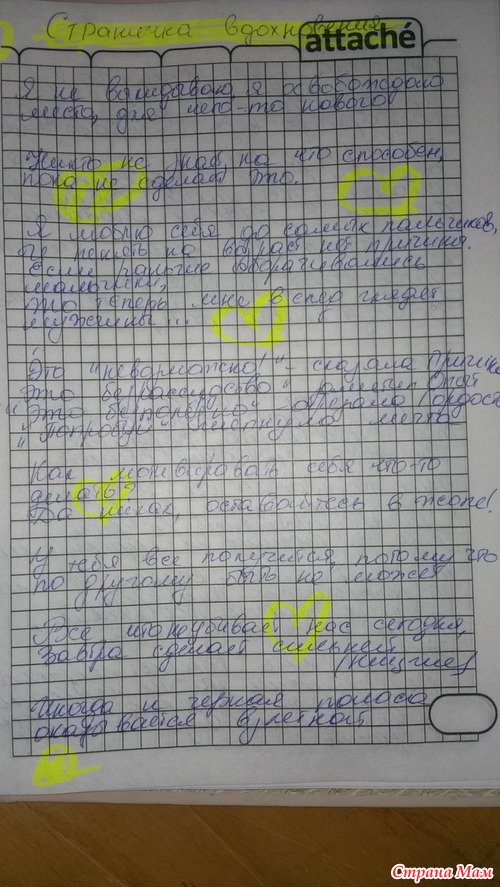 Страничка вдохновения
attaché
Я не выкидываю, я освобождаю
место, для чего-то нового
Никто не знает, на что способен,
пока не сделает это.
Я люблю себя до самых пальчиков,
И пенять на возраст нет причины.
Если раньше оборачивались
мальчики,
То теперь мне в след глядят
мужчины...
Это "невозможно!" - сказала Причина
"Это безрассудство" заметил Опыт
"Это бесполезно" отрезала Гордость
"Попробуй" шепнула мечта
Как мотивировать себя что-то
делать?
Да никак, оставайтесь в жопе!
У тебя все получится, потому что
по другому быть не может
Все что не убивает нас сегодня,
завтра сделает сильней
Ницше
Иногда и черная полоса
оказывается взлетной
Страна Мам